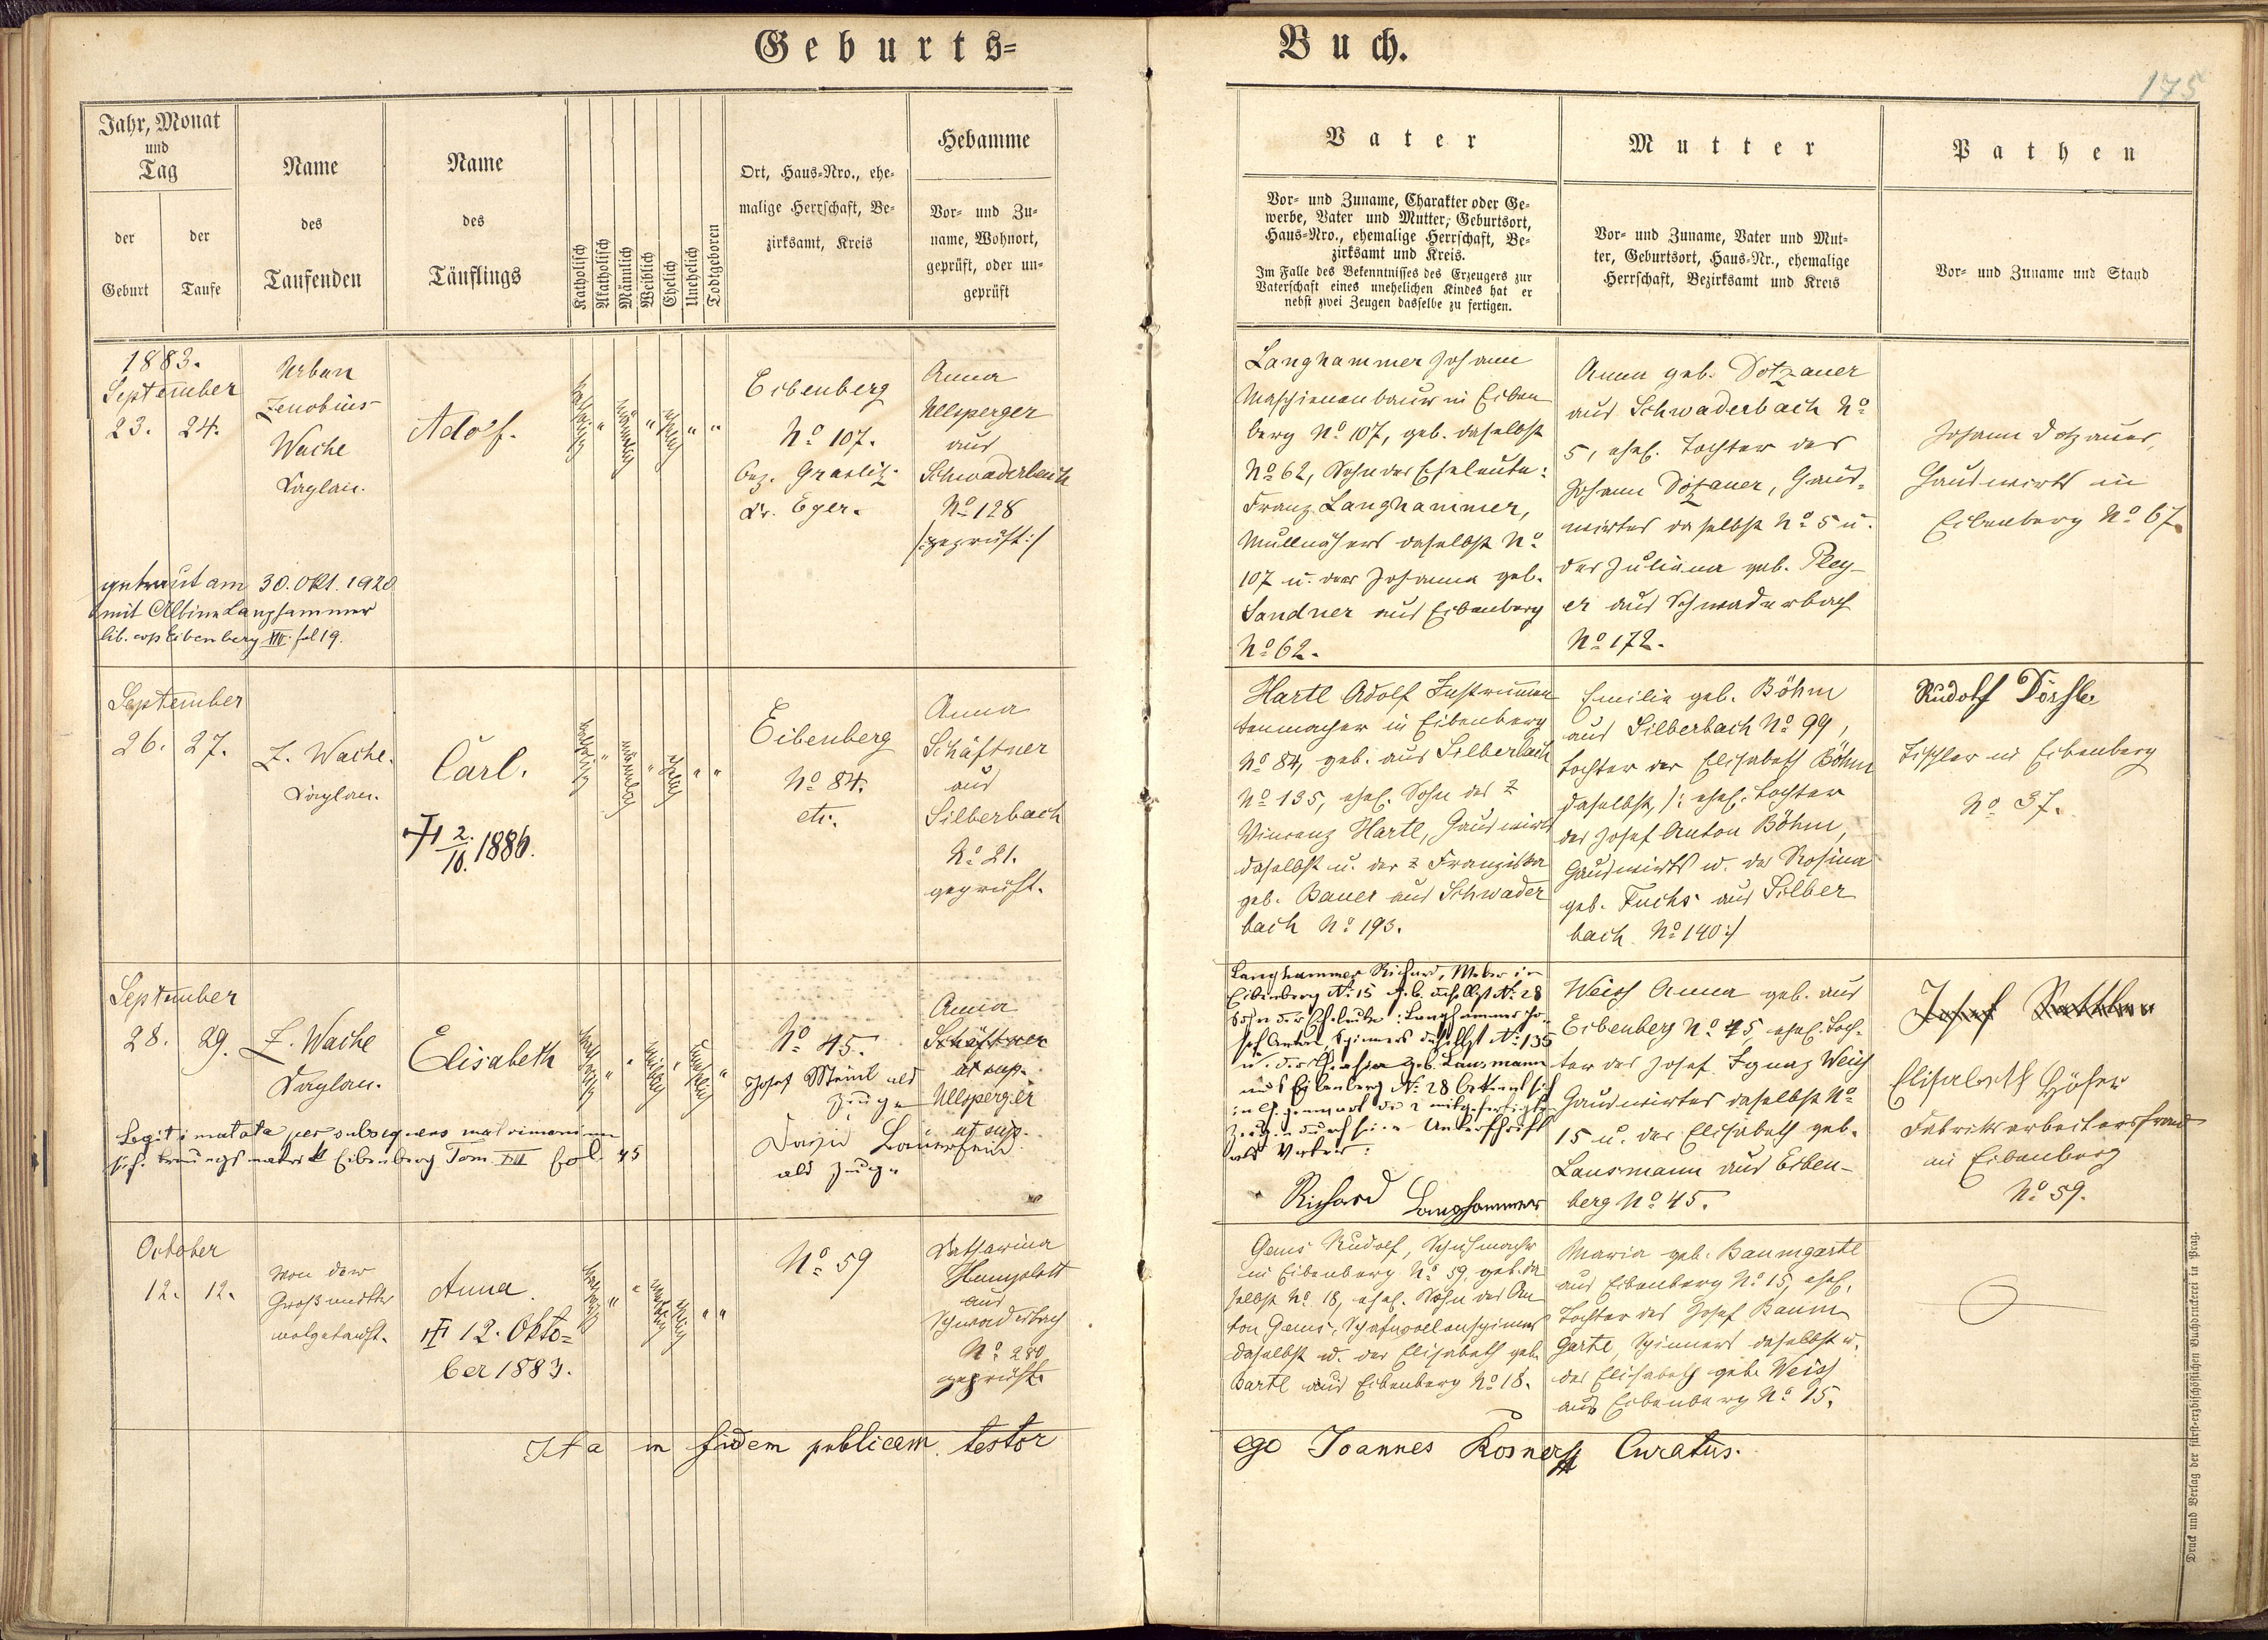 Geburts=
Buch.
175
Jahr, Monat
und
Tag
der
Geburt
der
Taufe
Name
des
Taufenden
Name
des
Täuflings
Katholisch
Akatholisch
Männlich
Weiblich
Ehelich
Unehelich
Todtgeboren
Ort, Haus=Nro., ehe=
malige Herrschaft, Be=
zirksamt, Kreis
Hebamme
Vor= und Zu=
name, Wohnort,
geprüft, oder un=
geprüft
Vater
Vor= und Zuname, Charakter oder Ge=
werbe, Vater und Mutter, Geburtsort,
Haus=Nro., ehemalige Herrschaft, Be=
zirksamt und Kreis.
Im Falle des Bekenntnisses des Erzeugers zur
Vaterschaft eines unehelichen Kindes hat er
nebst zwei Zeugen dasselbe zu fertigen.
Mutter
Vor= und Zuname, Vater und Mut=
ter, Geburtsort, Haus=Nr., ehemalige
Herrschaft, Bezirksamt und Kreis
Pathen
Vor= und Zuname und Stand
1883.
September
23. 24.
Urban
Zenobius
Wache
Kaplan.
Adolf.
Eibenberg
No 107.
Bez. Graslitz
Kr. Eger.
Anna
Ullsperger
aus
Schwaderbach
No 128
/:geprüft:/
getraut am 30. Okt. 1920
mit Albina Langhammer
lib. cop Eibenberg VIII fol 19.
Langhammer Johann
Maschienenbauer in Eiben
berg No 107, geb. daselbst
No 62, Sohn der Eheleute:
Franz Langhammer,
daselbst No
107 u. der Johanna geb.
Sandner aus Eibenberg
No 62.
Anna geb. Dotzauer
aus Schwaderbach No
5, ehel. Tochter des
Johann Dotzauer, Haus=
wirtes daselbst No 5 u.
der Juliana geb. Pley-
er aus Schwaderbach
No 172.
Johann Dotzauer,
Hauswirth in
Eibenberg No 67.
September
26. 27.
Z. Wache.
Kaplan.
Carl.
† 2/10. 1886.
Eibenberg
No 84.
etc.
Anna
Schäftner
aus
Silberbach
No 21.
geprüft.
Hartl Adolf Instrumen
tenmacher in Eibenberg
No 84, geb. aus Silberbach
No 135, ehel. Sohn des
Vincenz Hartl, Hauswirts
daselbst u. der Franziska
geb. Bauer aus Schwader
bach No 193.
Emilie geb. Böhm
aus Silberbach No 99,
Tochter der Elisabeth Böhm
daselbst, /: ehel. Tochter
des Josef Anton Böhm,
Hauswirts u. der Rosina
geb. Fuchs aus Silber
bach No 140:/
Rudolf
Tischler in Eibenberg
No 37.
September
28. 29.
Z. Wache
Kaplan.
Elisabeth
No 45.
Josef als
Zeuge
als Zeuge
Anna
Schäftner
ut sup.
Ullsperger
ut sup.
Legitimata per subsequens matrimonium
sieh. Trauungsmatrik Eibenberg Tom. VIII fol. 45
Langhammer Richard, Weber in
Eibenberg No 15 geb. daselbst No 28
Sohn der Eheleute: Langhammer Jo-
sef Anton, Spinners daselbst No 135
u. der Theresia geb. Lausmann
aus Eibenberg No 28 bekennt sich
in Gegenwart der 2 mitgefertigten
Zeugen durch seine Unterschrift
als Vater:
Richard Langhammer
Weiss Anna geb. aus
Eibenberg No 45, ehel. Toch-
ter des Josef Ignaz Weiss
Hauswirtes daselbst No
15 u. der Elisabeth geb.
Lausmann aus Eiben-
berg No 45.
Josef
Elisabeth Höfer
Fabriksarbeitersfrau
in Eibenberg
No 59.
October
12. 12.
Von der
Großmutter
notgetauft.
Anna.
† 12. Okto=
ber 1883.
No 59
Katharina
aus
Schwaderbach
No 280
geprüft.
Gams Rudolf, Schuhmacher
in Eibenberg No 59, geb. da
selbst No 18, ehel. Sohn des An
ton Gams, Schafwollenspinners
daselbst u. der Elisabeth geb.
Bartl aus Eibenberg No 18.
Maria geb. Baumgartl
aus Eibenberg No 15, ehel.
Tochter des Josef Baum
gartl, Spinners daselbst u.
der Elisabeth geb. Weiss
aus Eibenberg No 15.
Ita in fidem publicam testor
ego Joannes Rosner Curatus.
Druck und Verlag der fürst=erzbischöflichen Buchdruckerei in Prag.